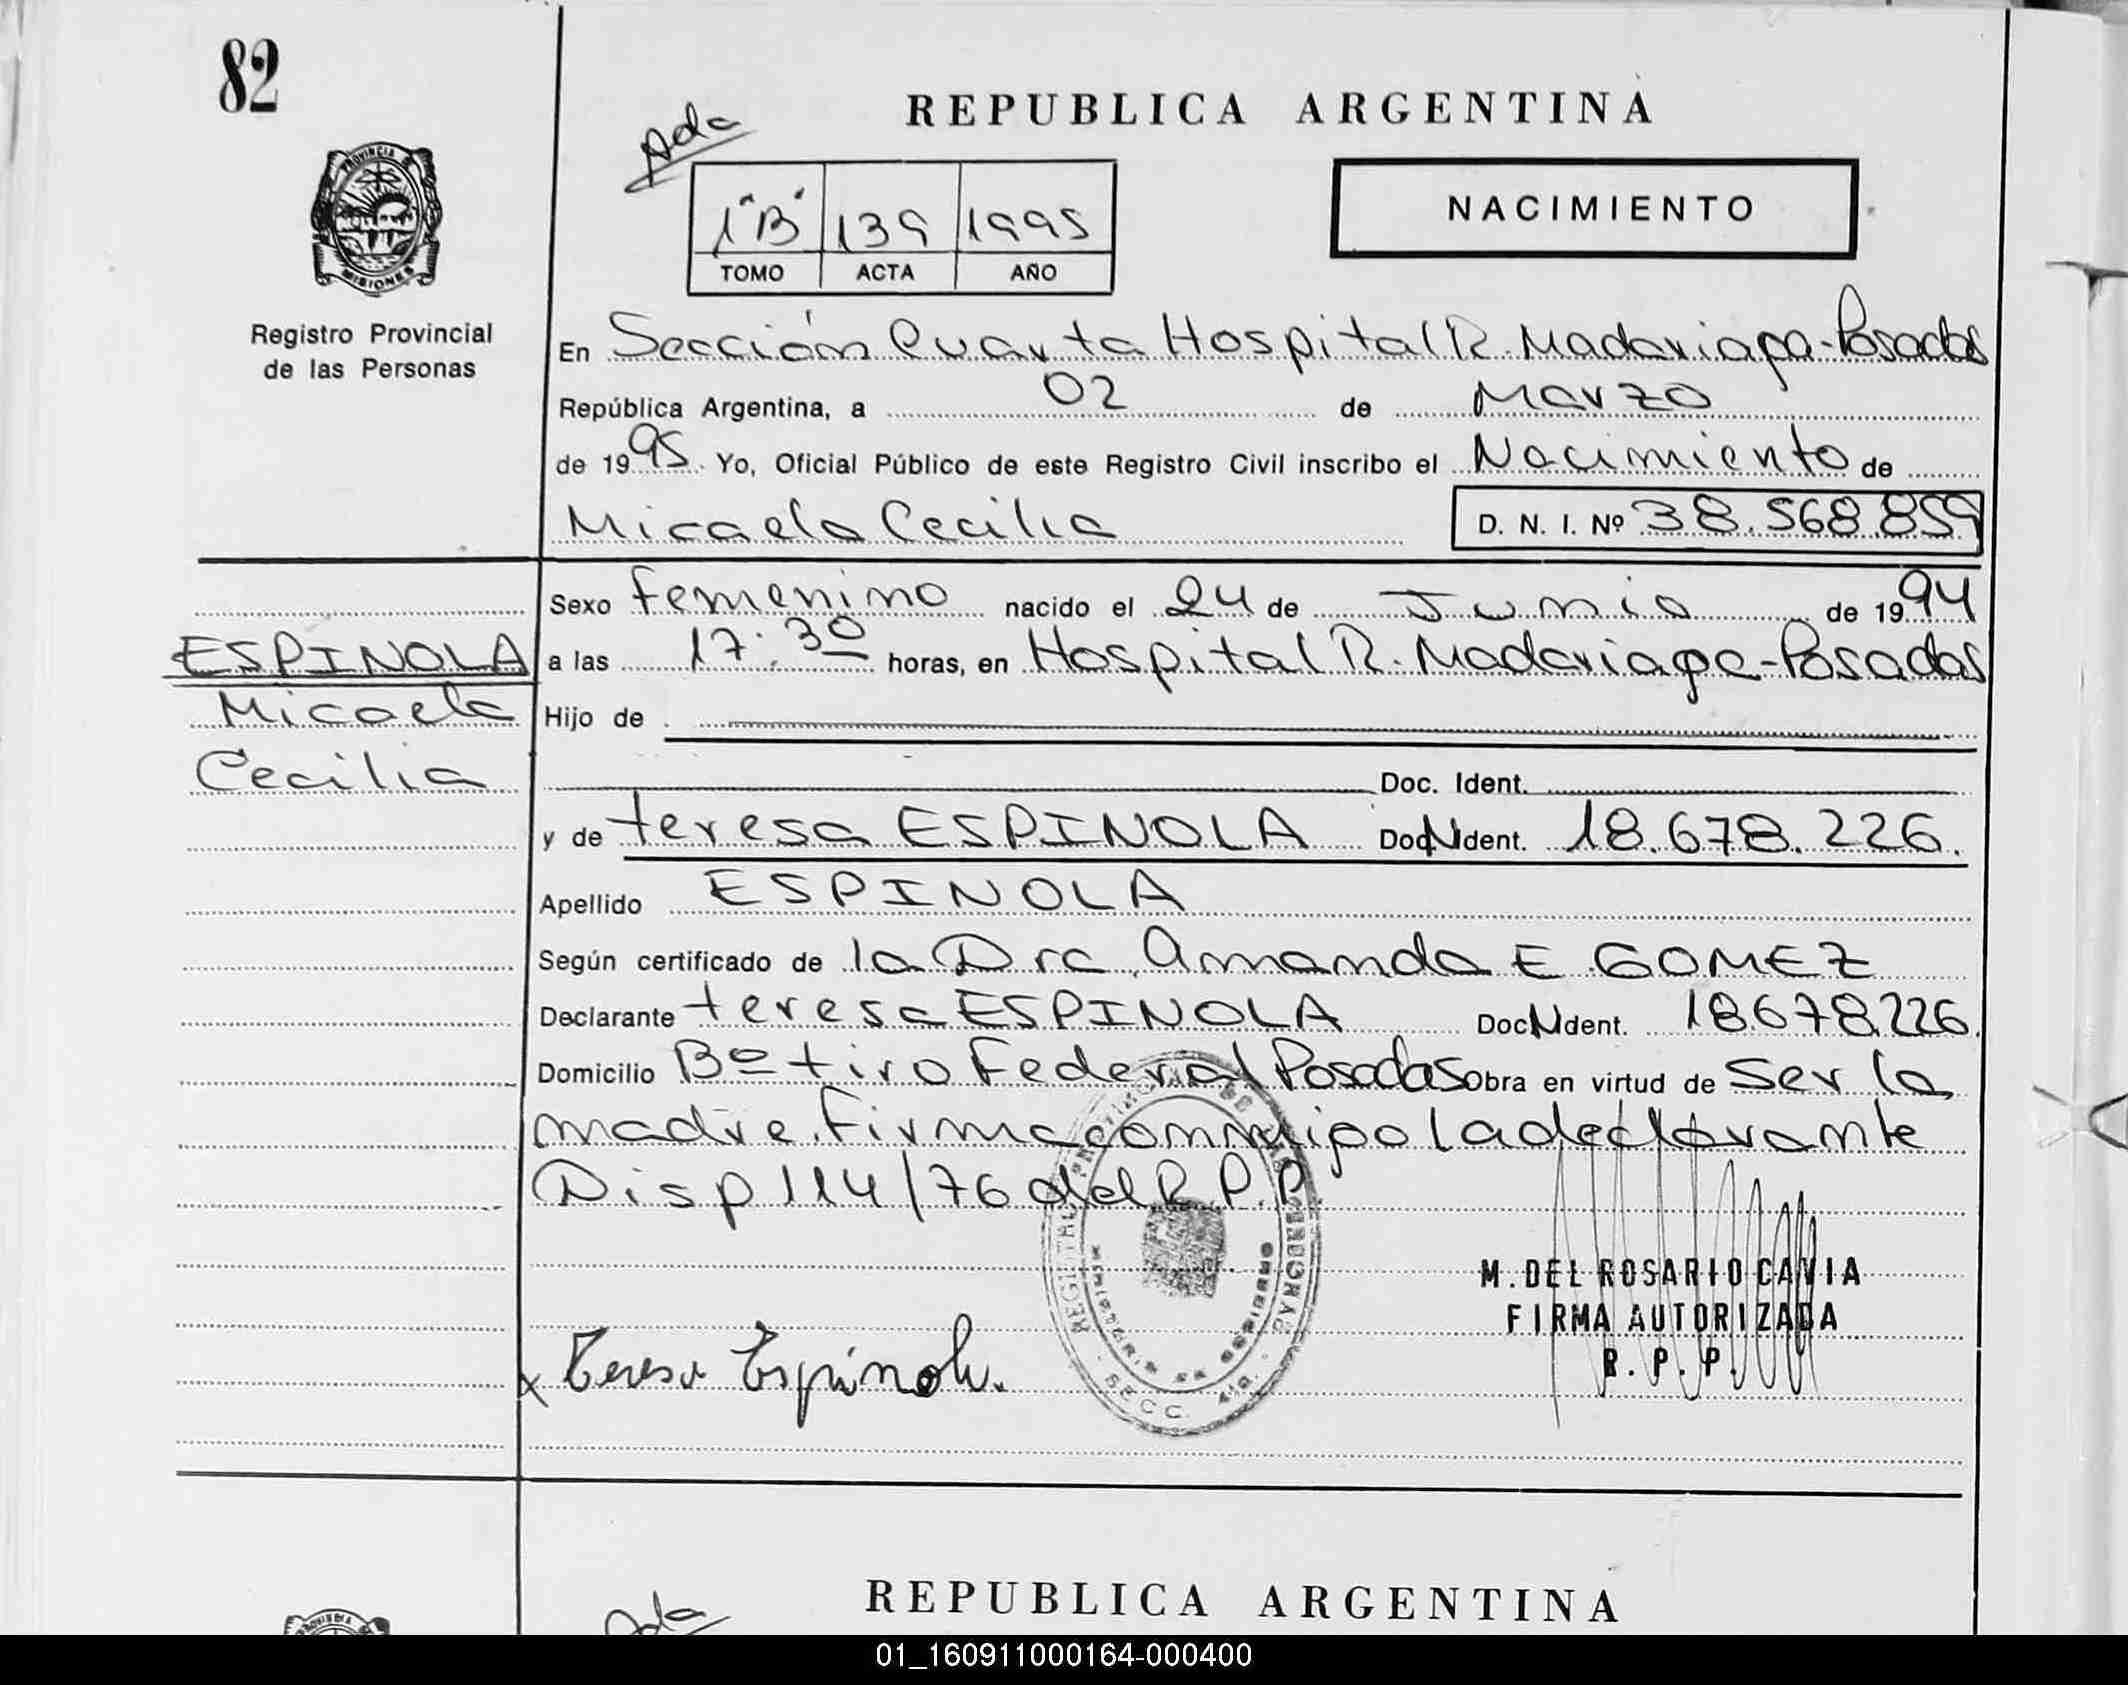 82
Ada
REPUBLICA ARGENTINA
PROVINCIA DE
MISIONES
1"B" 139 1995
TOMO ACTA AÑO
NACIMIENTO
Registro Provincial
de las Personas
En Sección Cuarta Hospital R. Madariaga-Posadas
República Argentina, a 02 de Marzo
de 1995 Yo, Oficial Público de este Registro Civil inscribo el Nacimiento de
Micaela Cecilia D. N. I. Nº 38.568.859
Sexo femenino nacido el 24 de Junio de 1994
ESPINOLA
Micaela
Cecilia
a las 17:30 horas, en Hospital R. Madariaga-Posadas
Hijo de
Doc. Ident.
y de teresa ESPINOLA DocNIdent. 18.678.226.
Apellido ESPINOLA
Según certificado de la Dra Amanda E GOMEZ
Declarante teresa ESPINOLA DocNIdent. 18678226.
Domicilio Bº tiro Federal Posadas obra en virtud de ser la
madre, firma conmigo la declarante
Disp 114/76 del R.P.P.
M. DEL ROSARIO CAVIA
FIRMA AUTORIZADA
R. P. P.
x Teresa Espinola.
SECC.
REPUBLICA ARGENTINA
Ada
01_160911000164-000400